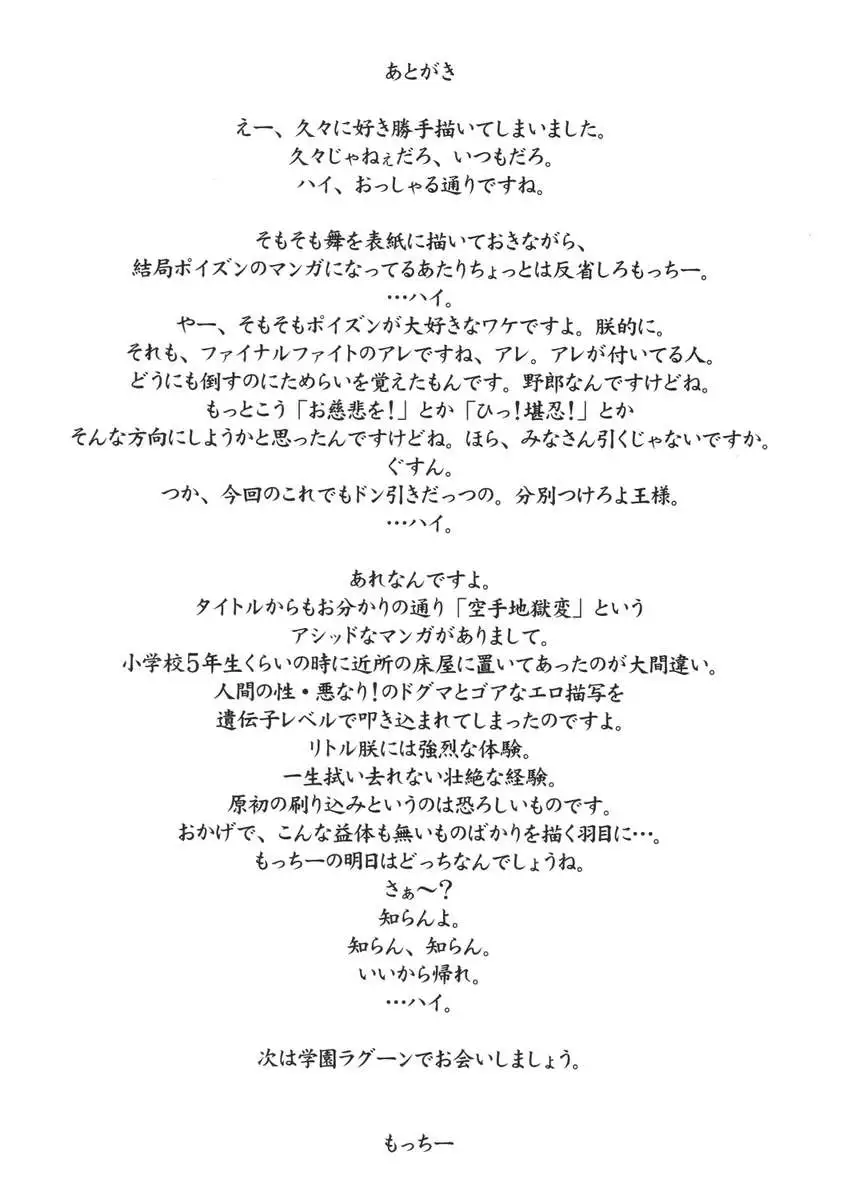 あとがき
えー、久々に好き勝手描いてしまいました。
久々じゃねぇだろ、いつもだろ。
ハイ、おっしゃる通りですね。
そもそも舞を表紙に描いておきながら、
結局ポイズンのマンガになってるあたりちょっとは反省しろもっちー。
…ハイ。
やー、そもそもポイズンが大好きなワケですよ。朕的に。
それも、ファイナルファイトのアレですね、アレ。アレが付いてる人。
どうにも倒すのにためらいを覚えたもんです。野郎なんですけどね。
もっとこう「お慈悲を！」とか「ひっ！堪忍！」とか
そんな方向にしようかと思ったんですけどね。ほら、みなさん引くじゃないですか。
ぐすん。
つか、今回のこれでもドン引きだっつの。分別つけろよ王様。
…ハイ。
あれなんですよ。
タイトルからもお分かりの通り「空手地獄変」という
アシッドなマンガがありまして。
小学校5年生くらいの時に近所の床屋に置いてあったのが大間違い。
人間の性・悪なり！のドグマとゴアなエロ描写を
遺伝子レベルで叩き込まれてしまったのですよ。
リトル朕には強烈な体験。
一生拭い去れない壮絶な経験。
原初の刷り込みというのは恐ろしいものです。
おかげで、こんな益体も無いものばかりを描く羽目に…。
もっちーの明日はどっちなんでしょうね。
さぁ～？
知らんよ。
知らん、知らん。
いいから帰れ。
…ハイ。
次は学園ラグーンでお会いしましょう。
もっちー